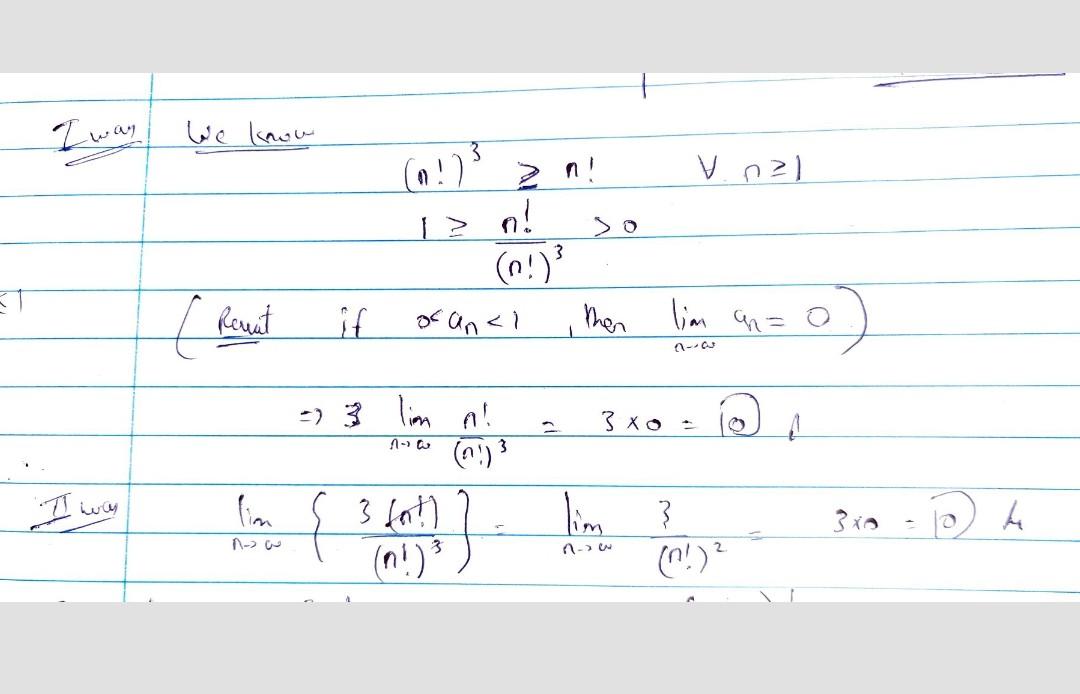 I way We know
(n!)³ ≥ n! ∀ n≥1
1 ≥ n!/(n!)³ >0
<1
( Result if 0< aₙ <1 , then lim n→∞ aₙ = 0 )
=> 3 lim n→∞ n!/(n!)³ = 3×0 = 0
II way lim n→∞ { 3(n!)/(n!)³ } = lim n→∞ 3/(n!)² = 3×0 = 0